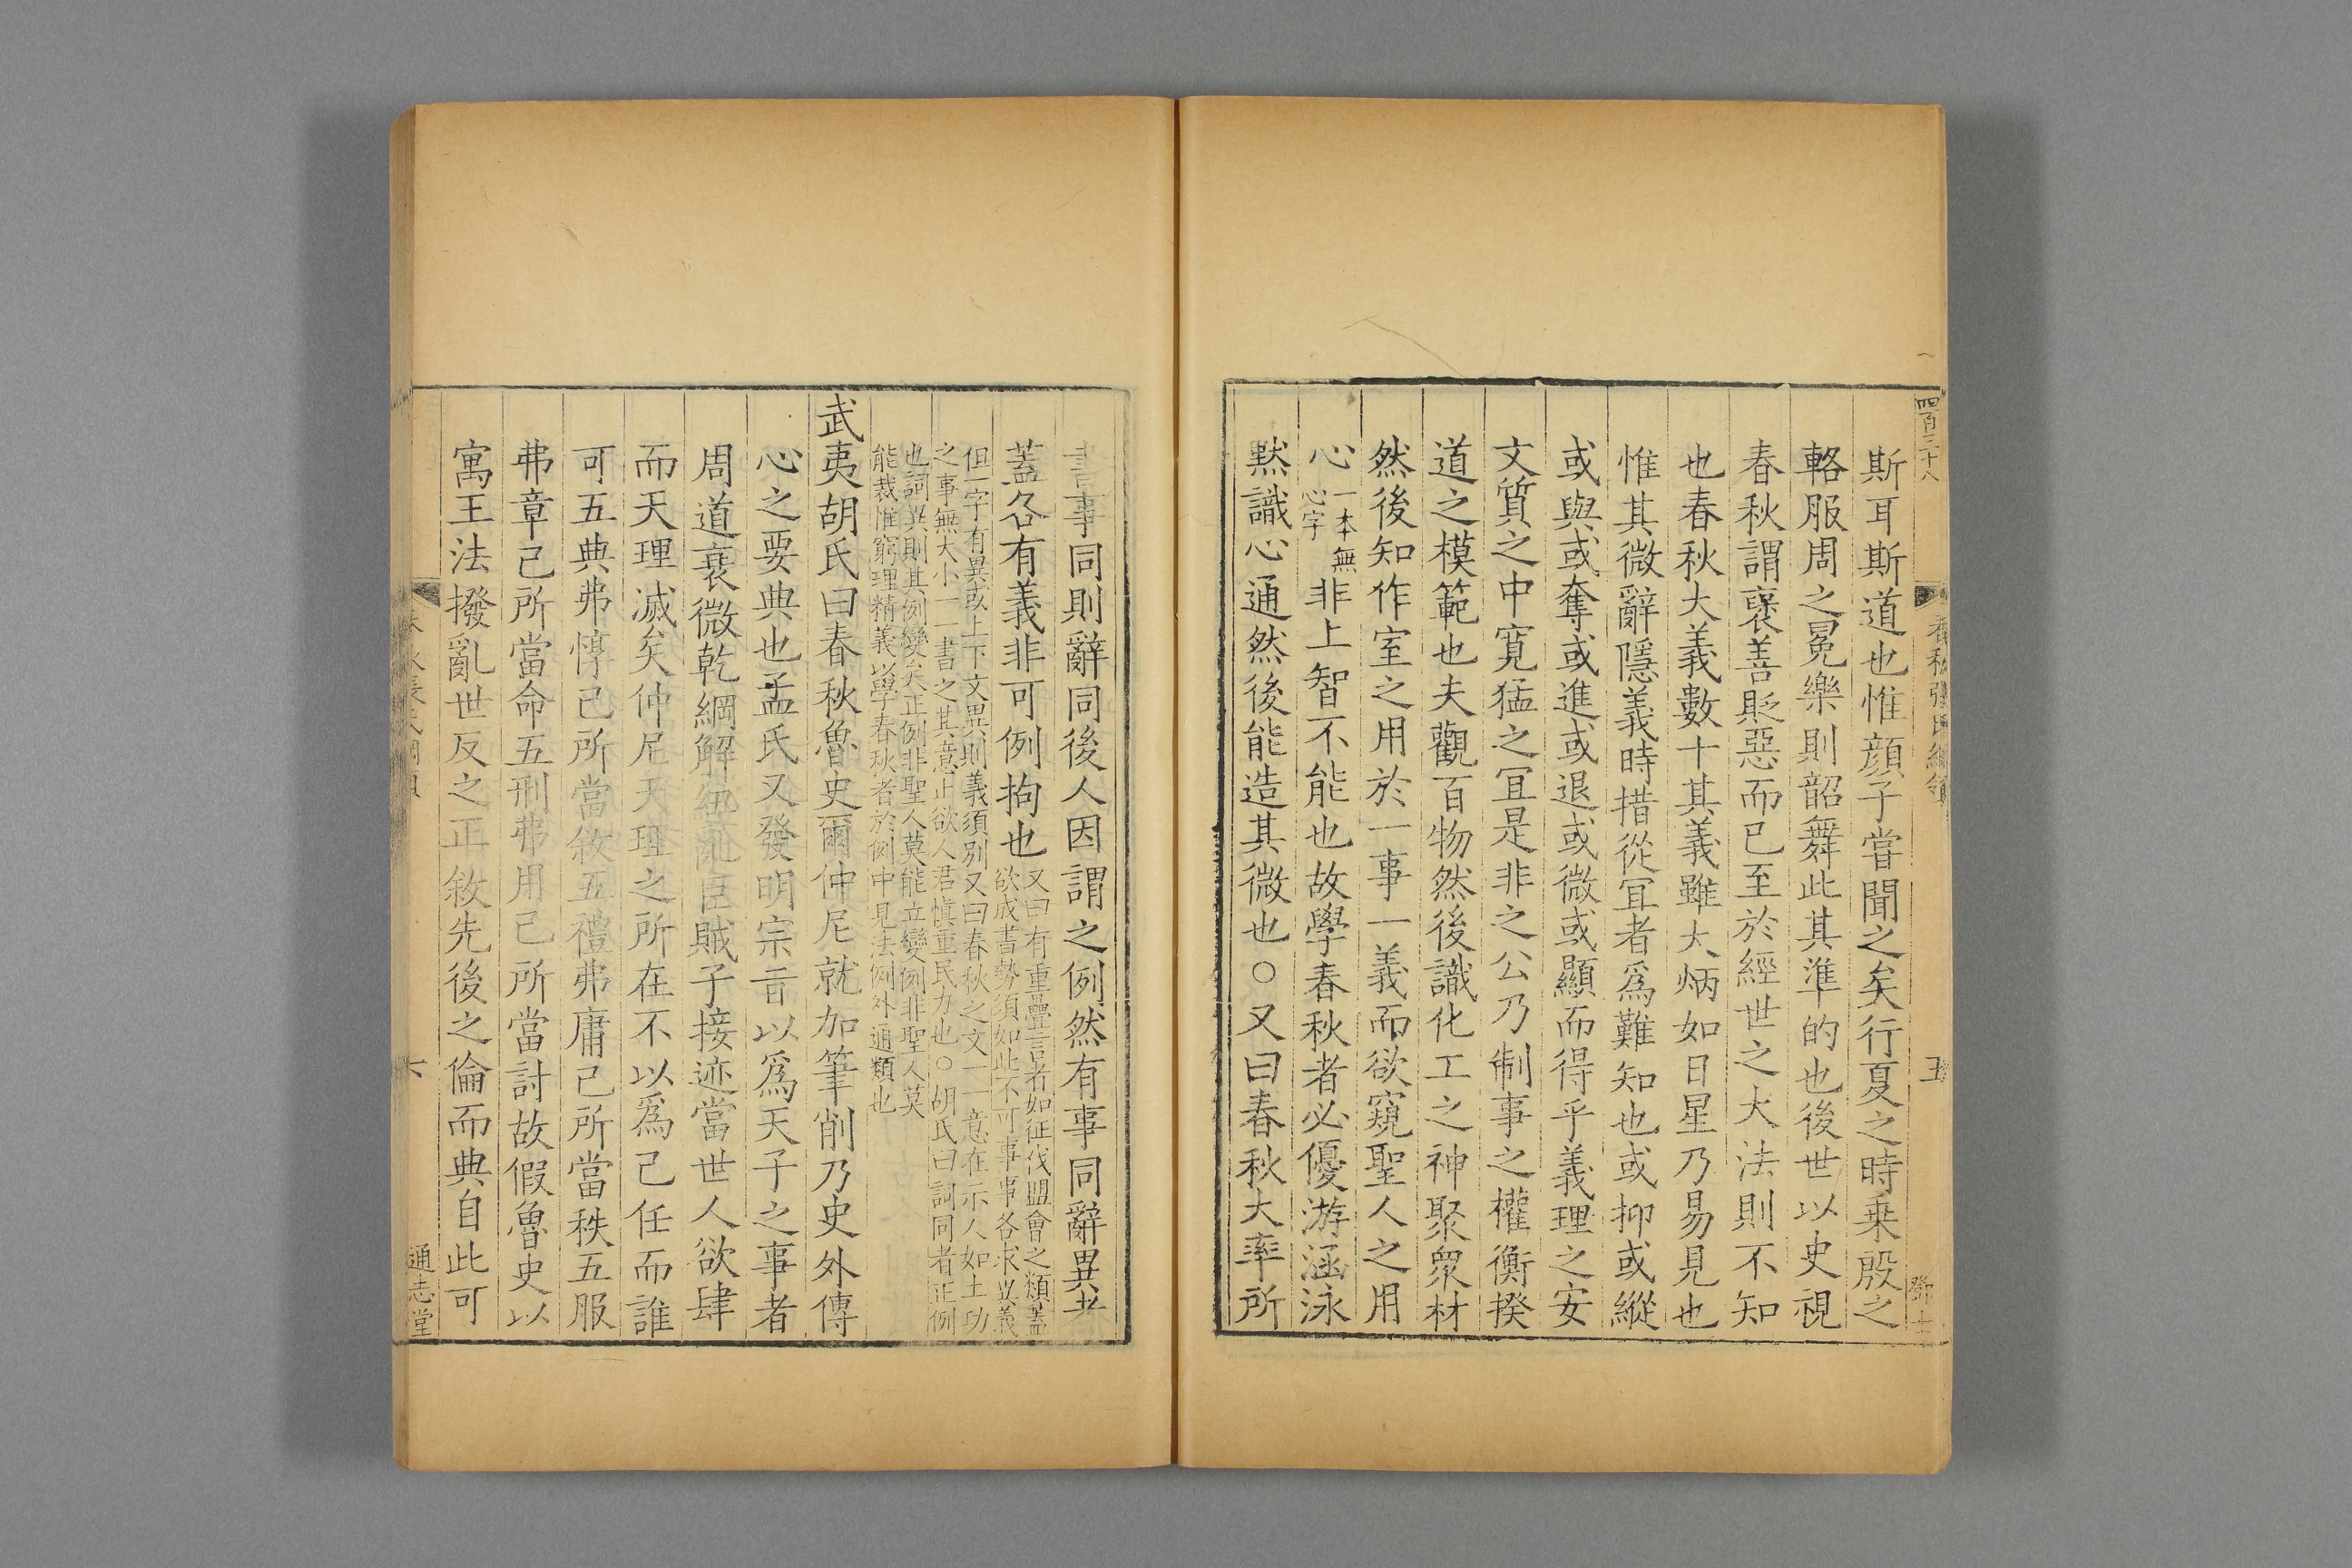 四百三十八
春秋張氏綱領
五
斯耳斯道也惟顔子嘗聞之矣行夏之時乗殷之
輅服周之冕樂則韶舞此其準的也後世以史視
春秋謂襃善貶惡而已至於經世之大法則不知
也春秋大義數十其義雖大炳如日星乃易見也
惟其微辭隱義時措從宜者爲難知也或抑或縱
或與或奪或進或退或微或顯而得乎義理之安
文質之中寛猛之宜是非之公乃制事之權衡揆
道之模範也夫觀百物然後識化工之神聚衆材
然後知作室之用於一事一義而欲窺聖人之用
心一本無心字非上智不能也故學春秋者必優游涵泳
黙識心通然後能造其微也○又曰春秋大率所
書事同則辭同後人因謂之例然有事同辭異者
蓋各有義非可例拘也又曰有重疊言者如征伐盟會之類蓋
欲成書勢須如此不可事事各求異義
但一字有異或上下文異則義須别又曰春秋之文一一意在示人如土功
之事無大小一一書之其意止欲人君慎重民力也○胡氏曰詞同者正例
也詞異則其例變矣正例非聖人莫能立變例非聖人莫
能裁惟窮理精義以學春秋者於例中見法例外通類也
武夷胡氏曰春秋魯史爾仲尼就加筆削乃史外傳
心之要典也孟氏又發明宗旨以爲天子之事者
周道衰微乾綱解紐亂臣賊子接迹當世人欲肆
而天理滅矣仲尼天理之所在不以爲己任而誰
可五典弗惇己所當敘五禮弗庸己所當秩五服
弗章己所當命五刑弗用己所當討故假魯史以
寓王法撥亂世反之正敘先後之倫而典自此可
六
通志堂